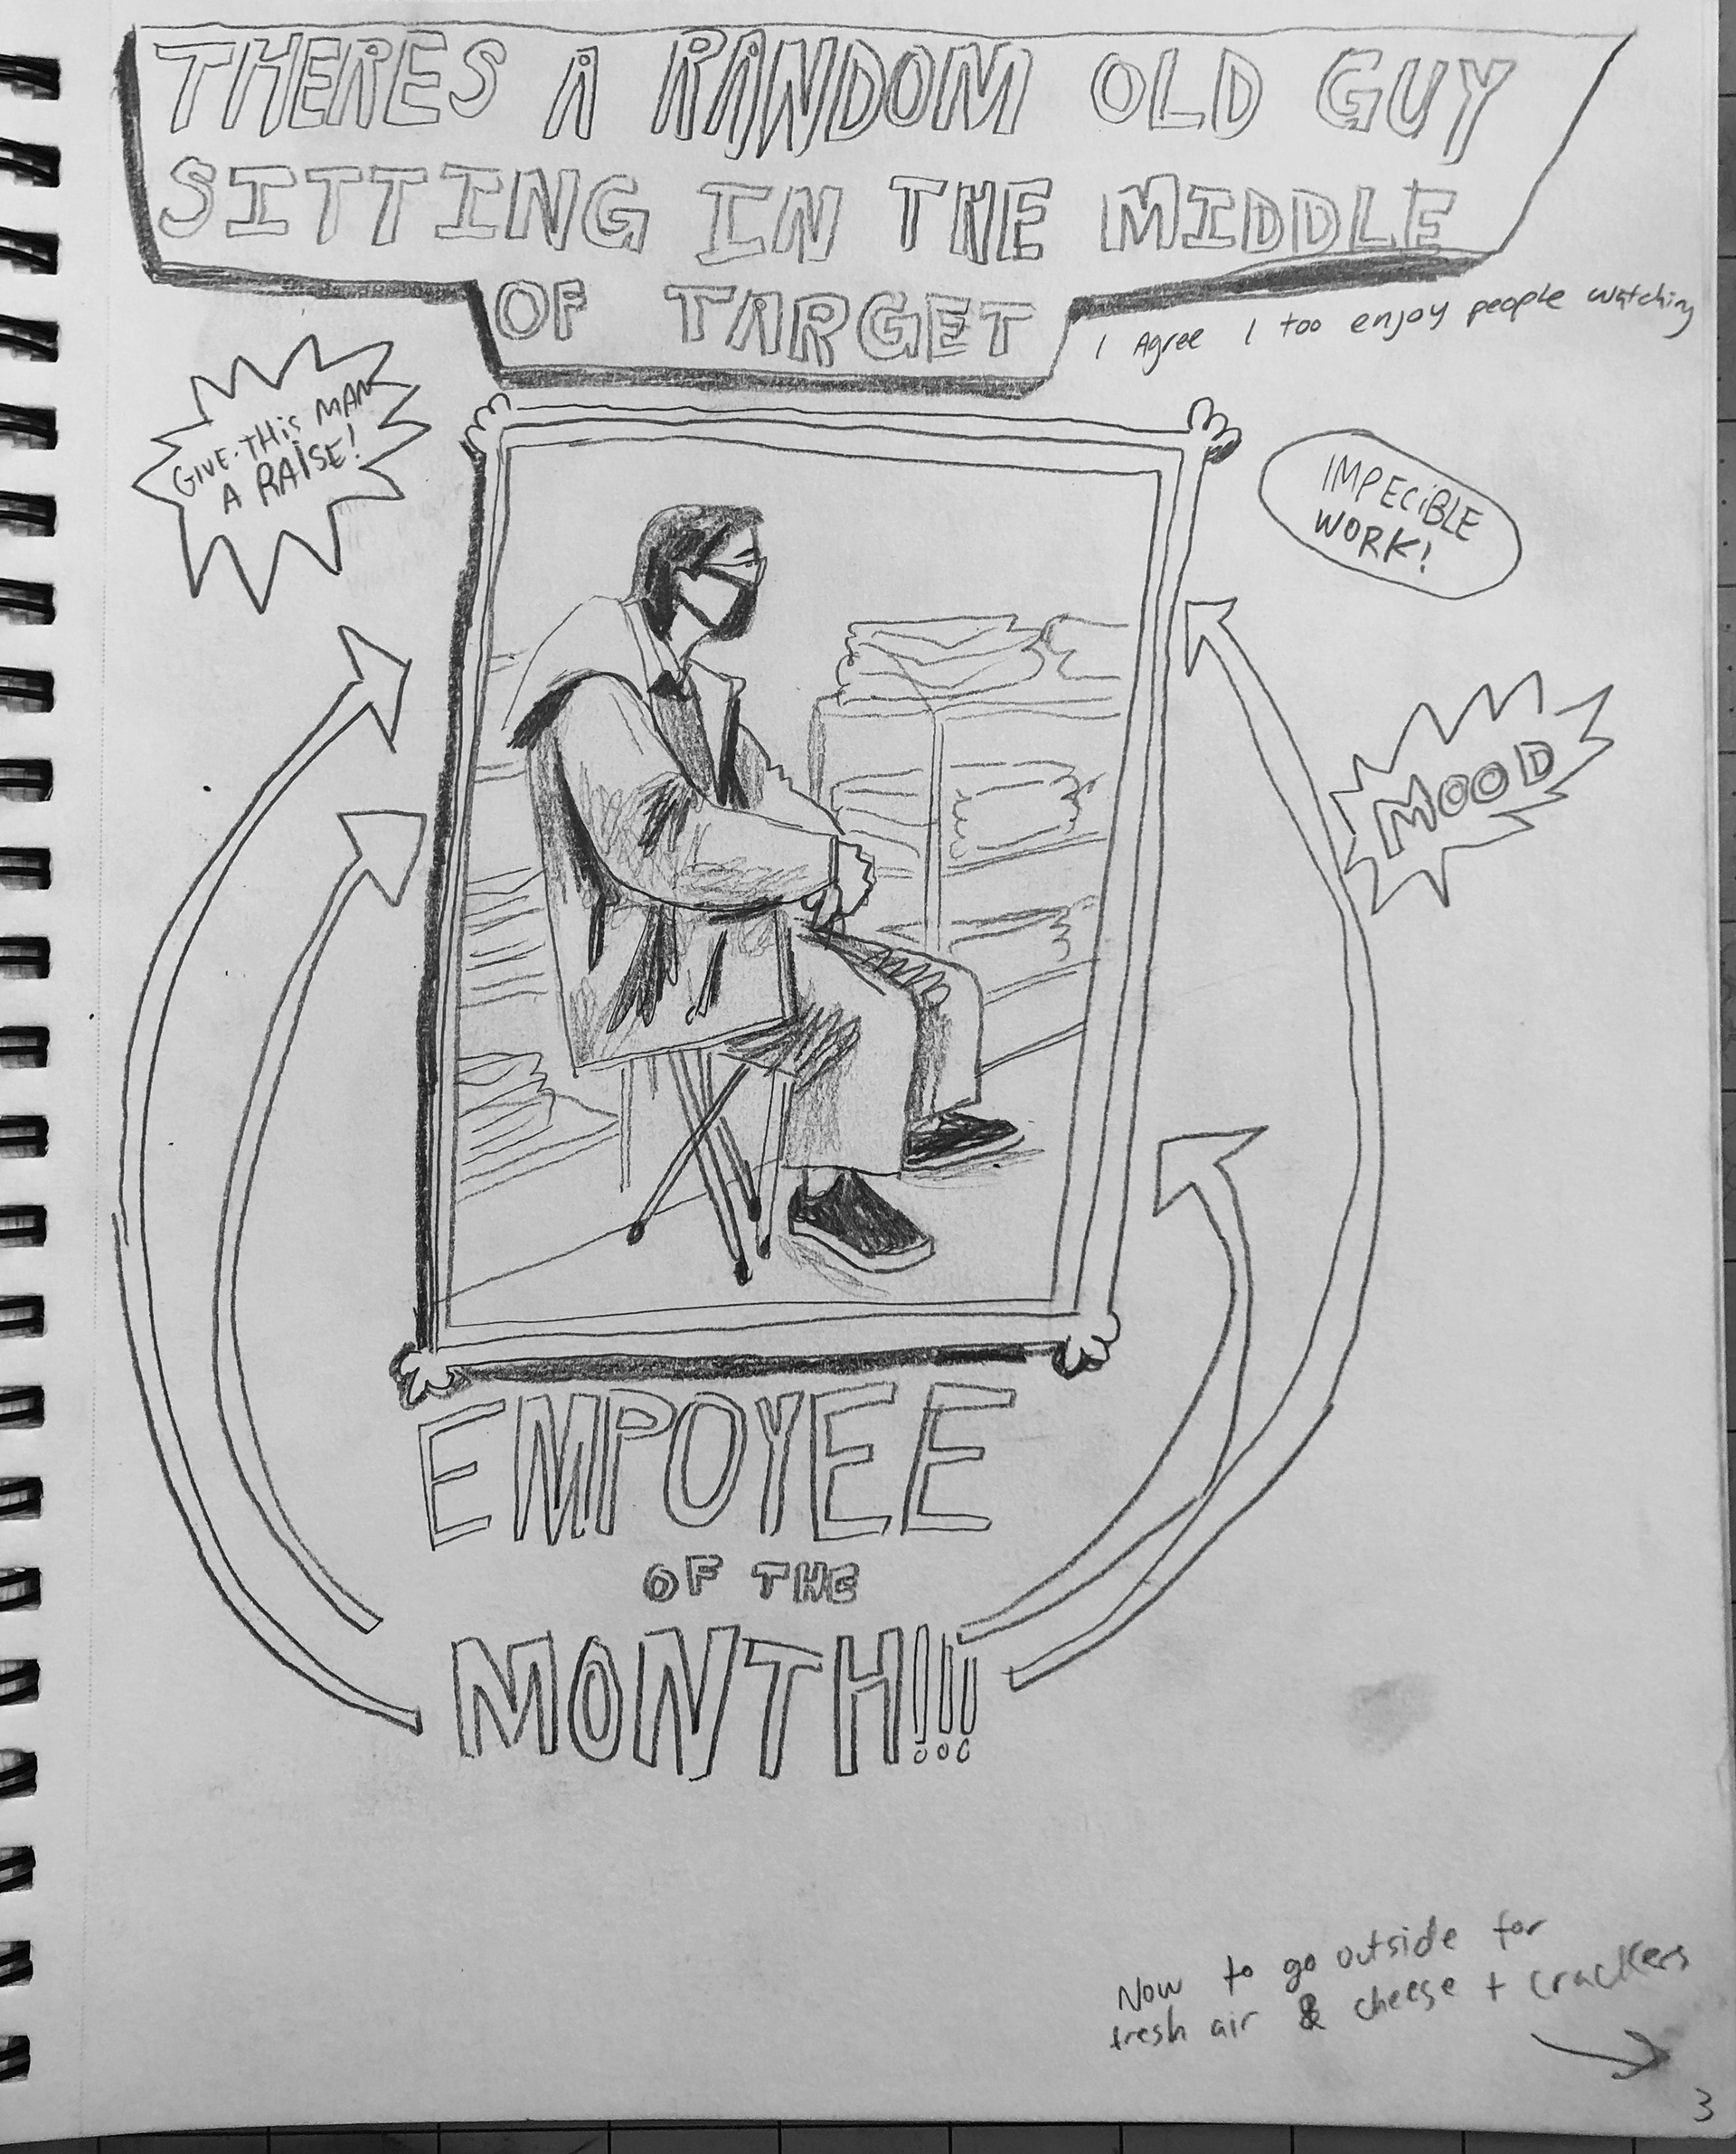 THERES A RANDOM OLD GUY
SITTING IN THE MIDDLE
OF TARGET
I Agree I too enjoy people watching
GIVE-THiS MAN
A RAiSE!
IMPECiBLE
WORK!
MOOD
EMPOYEE
OF THE
MONTH!!!
Now to go outside for
fresh air & cheese + crackers
3